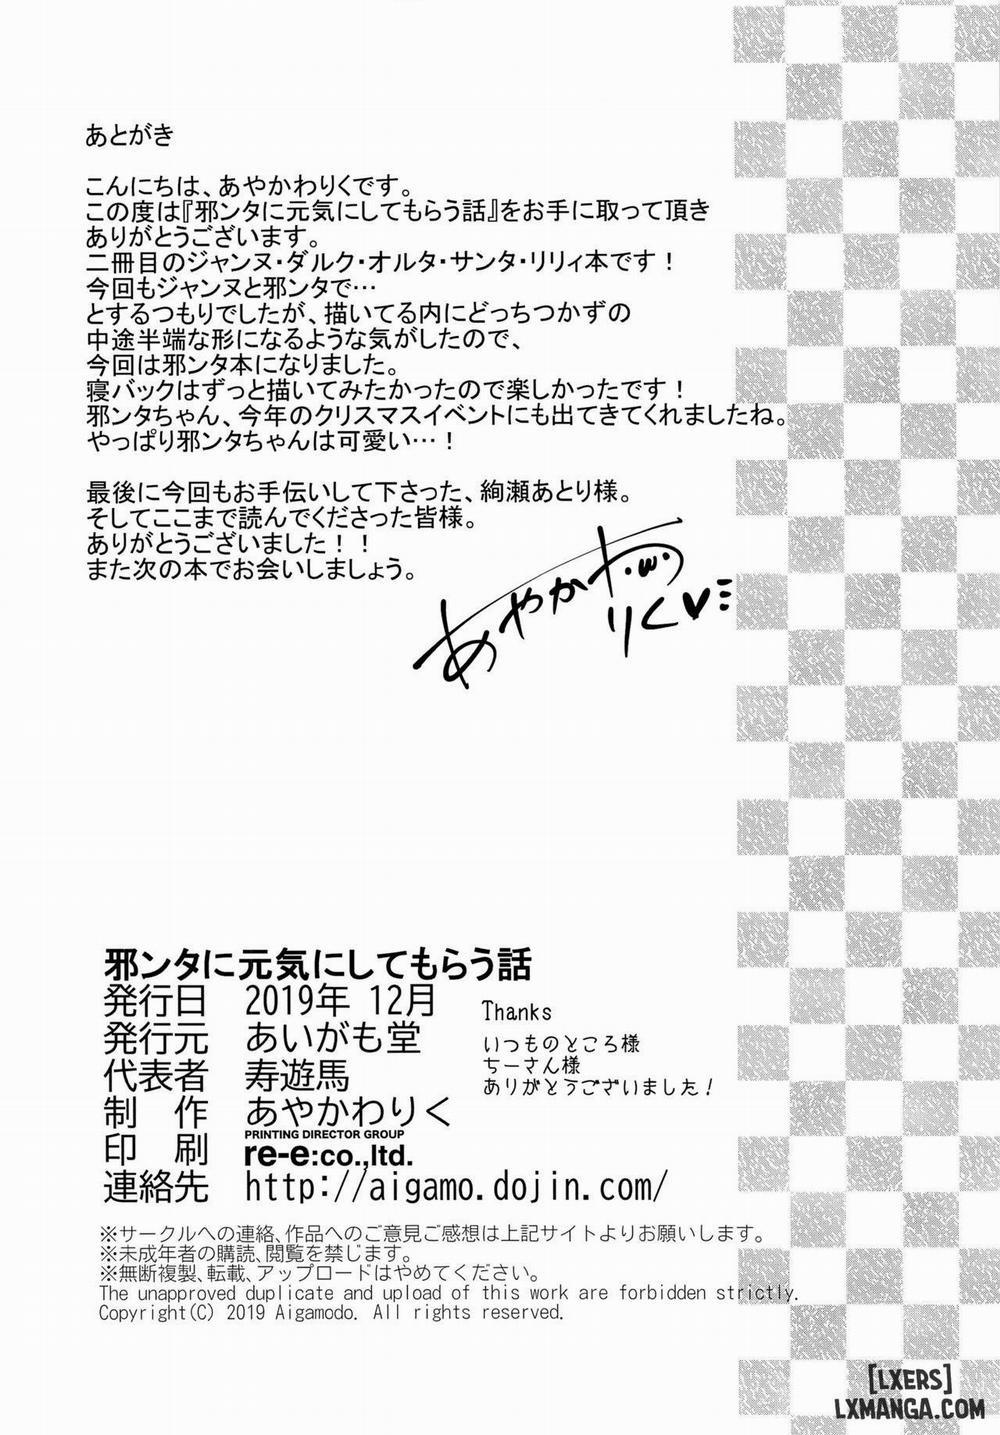 あとがき
こんにちは、あやかわりくです。
この度は『邪ンタに元気にしてもらう話』をお手に取って頂き
ありがとうございます。
二冊目のジャンヌ・ダルク・オルタ・サンタ・リリィ本です！
今回もジャンヌと邪ンタで…
とするつもりでしたが、描いてる内にどっちつかずの
中途半端な形になるような気がしたので、
今回は邪ンタ本になりました。
寝バックはずっと描いてみたかったので楽しかったです！
邪ンタちゃん、今年のクリスマスイベントにも出てきてくれましたね。
やっぱり邪ンタちゃんは可愛い…！
最後に今回もお手伝いして下さった、絢瀬あとり様。
そしてここまで読んでくださった皆様。
ありがとうございました！！
また次の本でお会いしましょう。
あやかわ
りく
邪ンタに元気にしてもらう話
発行日 2019年 12月
発行元 あいがも堂
代表者 寿遊馬
制 作 あやかわりく
PRINTING DIRECTOR GROUP
印 刷 re-e:co.,ltd.
連絡先 http://aigamo.dojin.com/
Thanks
いつものところ様
ちーさん様
ありがとうございました！
※サークルへの連絡、作品へのご意見ご感想は上記サイトよりお願いします。
※未成年者の購読、閲覧を禁じます。
※無断複製、転載、アップロードはやめてください。
The unapproved duplicate and upload of this work are forbidden strictly.
Copyright(C) 2019 Aigamodo. All rights reserved.
[LXERS]
LXMANGA.COM